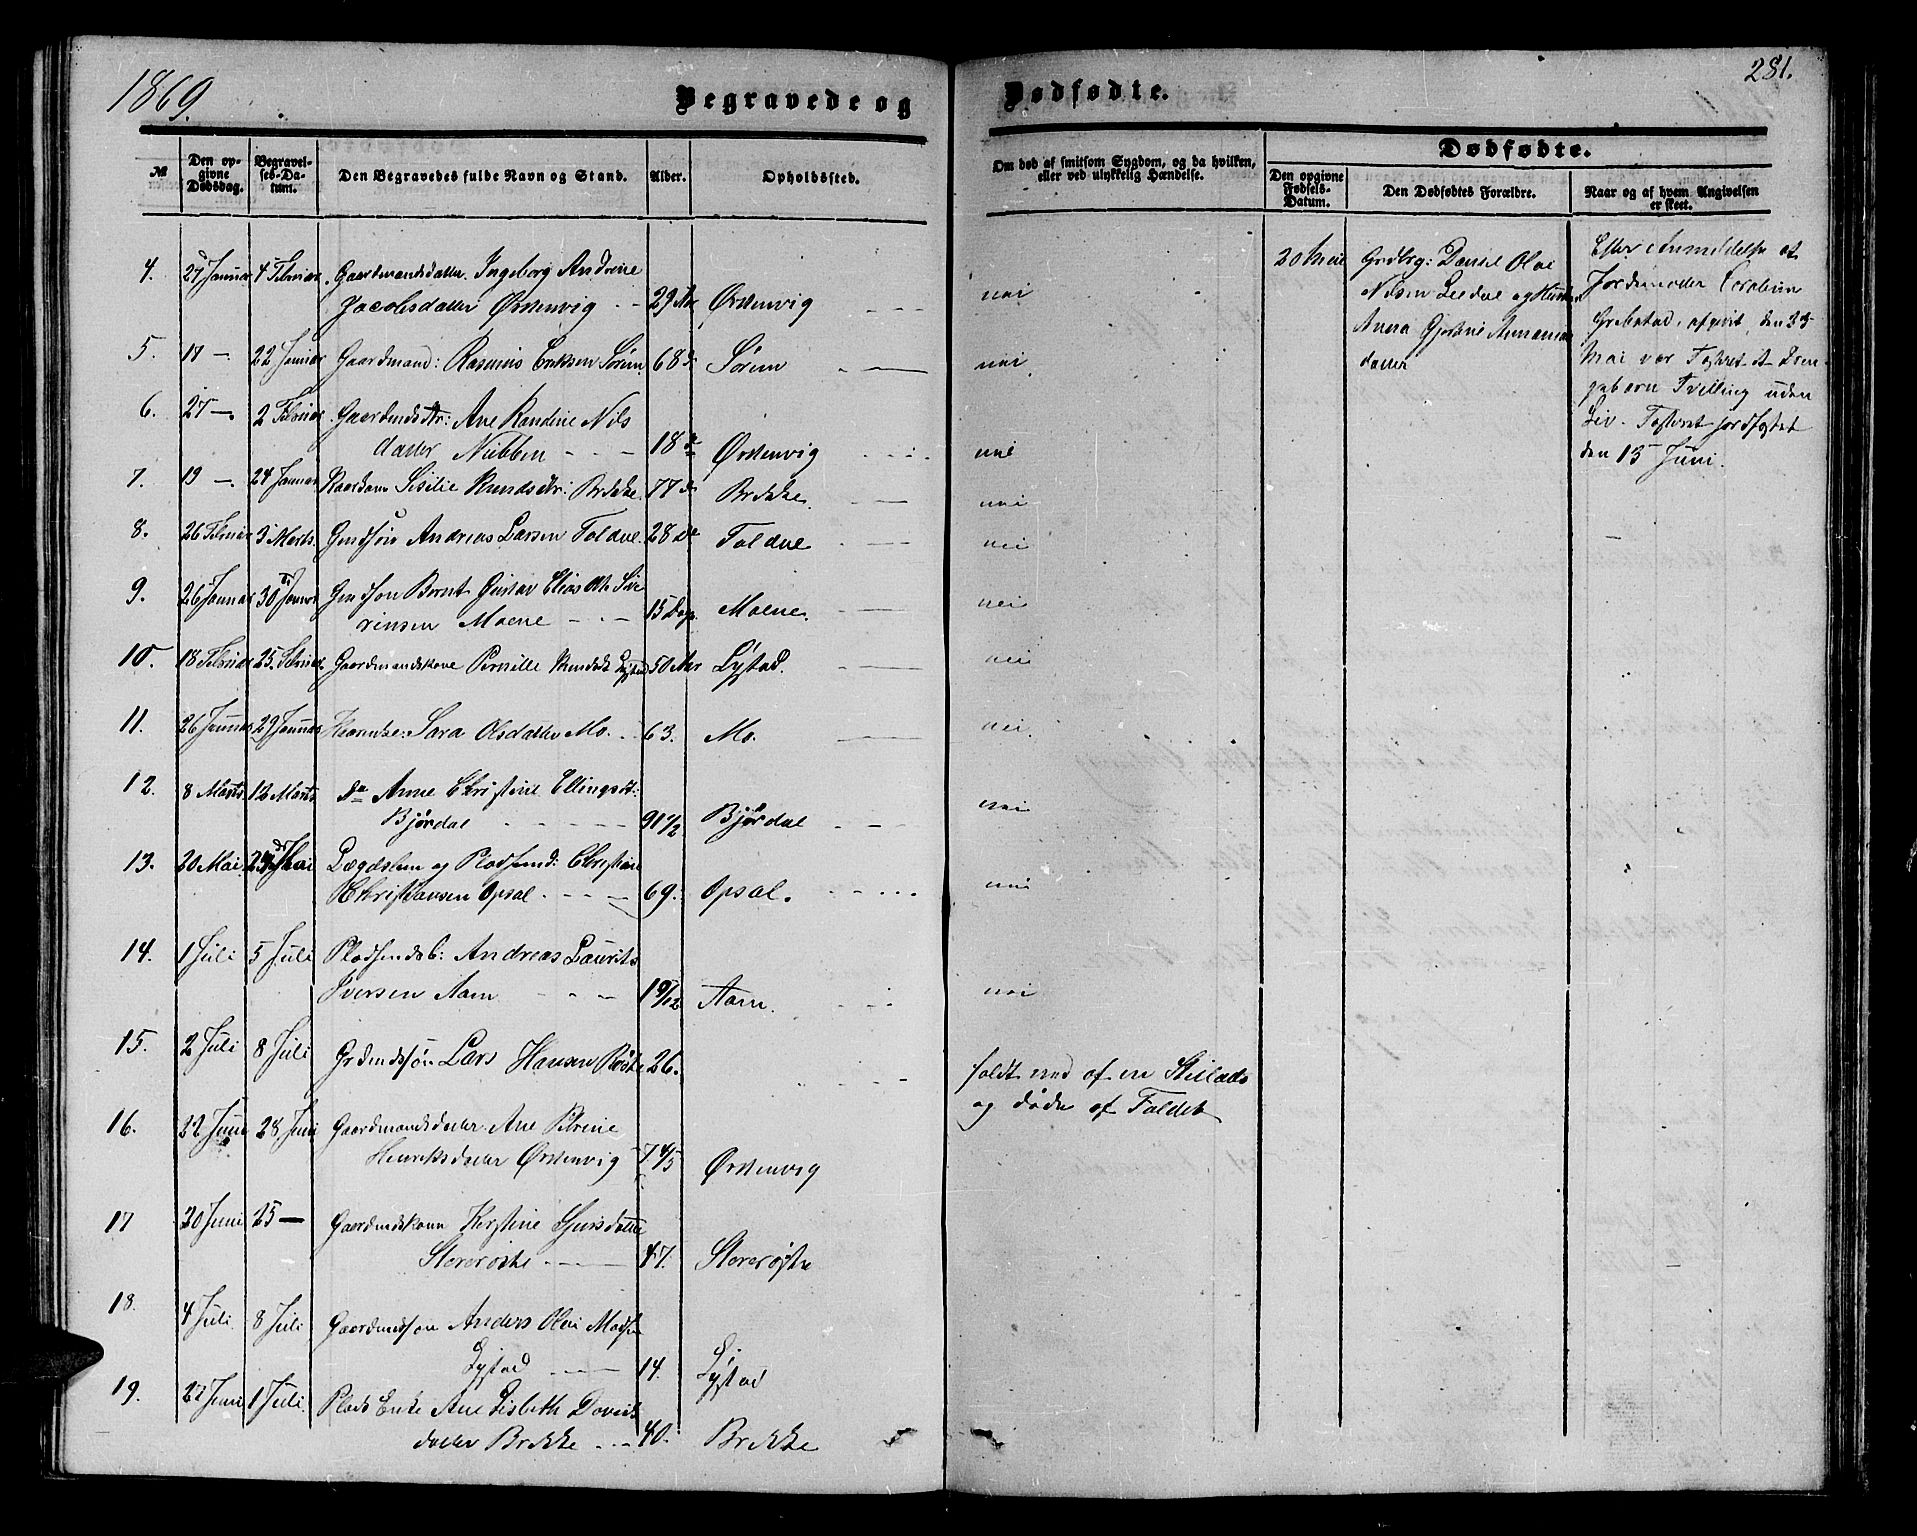 1869.
Begravede og
Dødfødte.
281.
№
Den op-
givne
Dødsdag.
Begravel-
ses-Da-
tum.
Den Begravedes fulde Navn og Stand.
Alder.
Opholdssted.
Om død af smitsom Sygdom, og da hvilken,
eller ved ulykkelig Hændelse.
Dødfødte.
Den opgivne
Fødsels-
Datum.
Den Dødfødtes Forældre.
Naar og af hvem Angivelsen
er skeet.
4. 27 Januar 4 Februar Gaardmandsdatter Ingeborg Andrine
Jacobsdatter Ørstenvig 29 Aar Ørstenvig nei
5. 22 Januar Gaardmand: Rasmus Eriksen Sørem 68 Sørem nei
6. 27 — 2 Februar Gaardmdsdtr: Ane Randine Nils
datter Nubben 18 Ørstenvig nei
7. 19 — 24 Januar Sisilie Knudsdtr: Brekke 77 Brekke nei
8. 26 Februar 3 Marts. Gmdsøn Andreas Larsen Foldal 28 Foldal nei
9. 26 Januar 30 Januar Gmdsøn Bernt Gustav Elias Sive
rinsen Moene 15 Dage Moene. nei
10. 18 Februar 25. Februar Gaardmandskone Pernille Knudsdtr Lystad 50 Aar Lystad. nei
11. 26 Januar 29 Januar Sara Olsdatter Mo. 63. Mo. nei
12. 8 Marts 12 Marts do Anne Christine Ellingsdt:
Bjørdal 91 1/2 Bjørdal nei
13. 20 Mai Mai Lægdslem og Pladsmd: Christian
Christiansen Opsal 69. Opsal. nei
14. 1 Juli 5 Juli Andreas Laurits
Iversen Aam Aam. nei
15. 2 Juli 8 Juli Grdmdssøn Lars Hansen 26.
faldt ned af en Stillads
og døde af Faldet
16. 22 Juni 28 Juni Gaardmandsdatter Ane Petrine
Henriksdatter Ørstenvig 7 4/5 Ørstenvig
17 20 Juni 25 — Gaardmdskone Kirstine Sjursdatter
Storerøste 47. Storerøste
18. 4 Juli 8 Juli Gaardmdssøn Anders Olai Madsen
Lystad 14. Lystad
19. 22 Juni 1 Juli Plads Enke Ane Lisbeth Davids
datter Brekke 40. Brekke
20 Mai
Grdbrg: Daniel Olai
Nilsen Leedal og Hustru
Anna
datter
Efter Anmeldelse af
Jordemoder
Grebstad, afgivet den 23
Mai var Fosteret et Dren-
gebarn Tvilling uden
Liv. Fosteret jordfæstet
den 13 Juni.